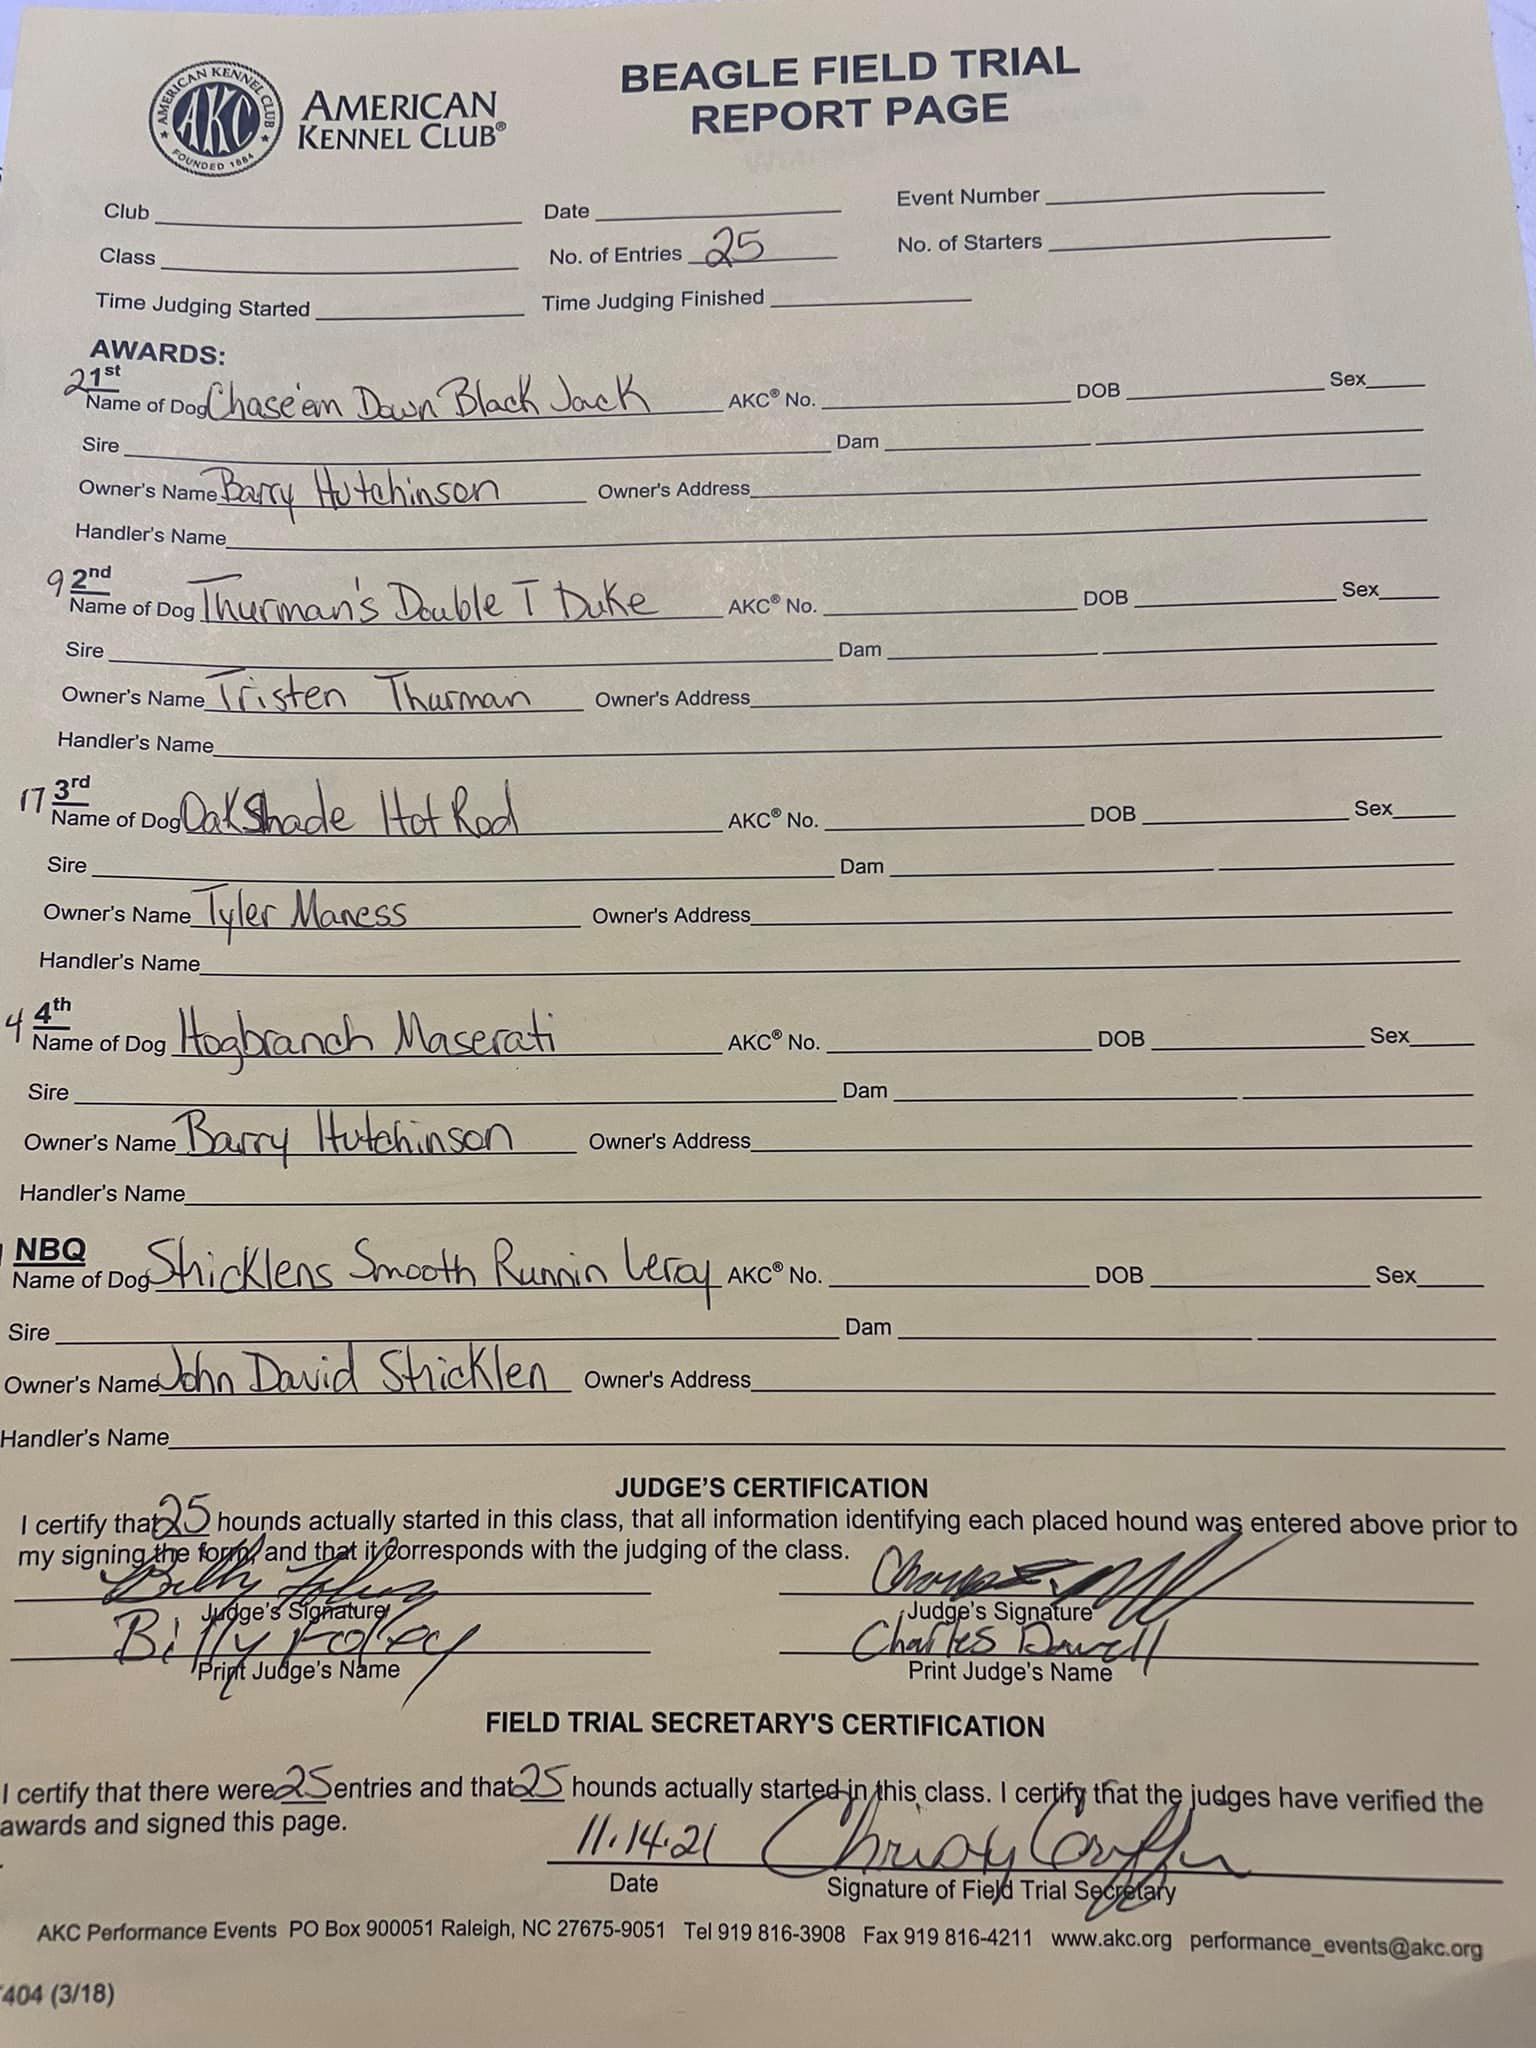 AMERICAN KENNEL CLUB
AKC
FOUNDED 1884
AMERICAN
KENNEL CLUB®
BEAGLE FIELD TRIAL
REPORT PAGE
Club Date Event Number
Class No. of Entries 25 No. of Starters
Time Judging Started Time Judging Finished
AWARDS:
21 1st
Name of Dog Chase'em Down Black Jack AKC® No. DOB Sex
Sire Dam
Owner's Name Barry Hutchinson Owner's Address
Handler's Name
9 2nd
Name of Dog Thurman's Double T Duke AKC® No. DOB Sex
Sire Dam
Owner's Name Tristen Thurman Owner's Address
Handler's Name
17 3rd
Name of Dog OakShade Hot Rod AKC® No. DOB Sex
Sire Dam
Owner's Name Tyler Maness Owner's Address
Handler's Name
4 4th
Name of Dog Hogbranch Maserati AKC® No. DOB Sex
Sire Dam
Owner's Name Barry Hutchinson Owner's Address
Handler's Name
NBQ
Name of Dog Stricklens Smooth Runnin Leroy AKC® No. DOB Sex
Sire Dam
Owner's Name John David Stricklen Owner's Address
Handler's Name
JUDGE'S CERTIFICATION
I certify that 25 hounds actually started in this class, that all information identifying each placed hound was entered above prior to
my signing the form, and that it corresponds with the judging of the class.
Billy Foley
Judge's Signature Judge's Signature
Billy Foley Charles Dowell
Print Judge's Name Print Judge's Name
FIELD TRIAL SECRETARY'S CERTIFICATION
I certify that there were 25 entries and that 25 hounds actually started in this class. I certify that the judges have verified the
awards and signed this page.
11.14.21 Christy Griffin
Date Signature of Field Trial Secretary
AKC Performance Events PO Box 900051 Raleigh, NC 27675-9051 Tel 919 816-3908 Fax 919 816-4211 www.akc.org performance_events@akc.org
404 (3/18)